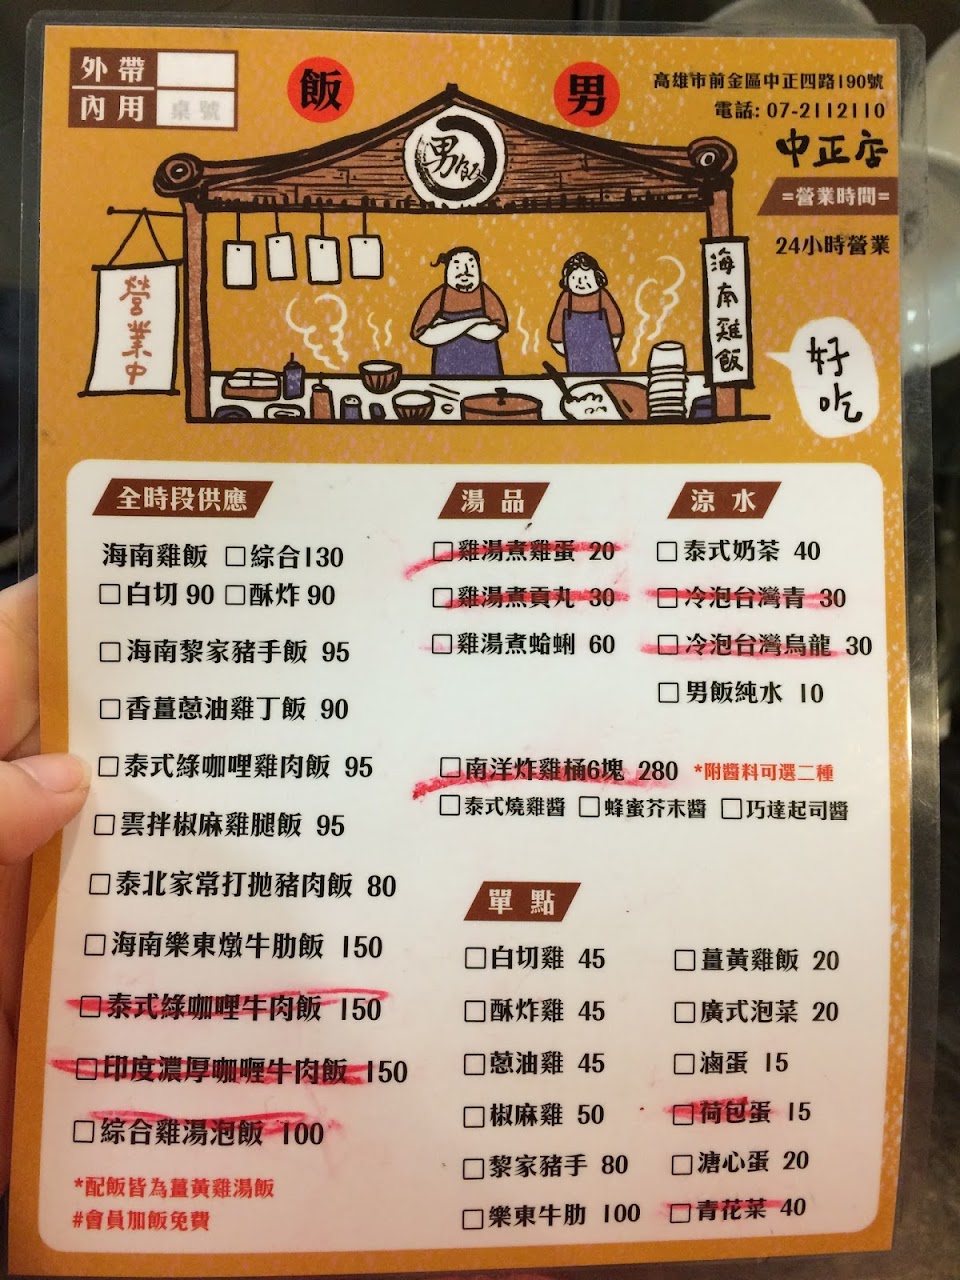 外帶
內用 桌號
飯 男
高雄市前金區中正四路190號
電話: 07-2112110
中正店
=營業時間=
24小時營業
男飯
營業中
海南雞飯
好吃
全時段供應
海南雞飯 □綜合130
□白切 90 □酥炸 90
□海南黎家豬手飯 95
□香薑蔥油雞丁飯 90
□泰式綠咖哩雞肉飯 95
□雲拌椒麻雞腿飯 95
□泰北家常打拋豬肉飯 80
□海南樂東燉牛肋飯 150
□泰式綠咖哩牛肉飯 150
□印度濃厚咖喱牛肉飯 150
□綜合雞湯泡飯 100
*配飯皆為薑黃雞湯飯
#會員加飯免費
湯品
□雞湯煮雞蛋 20
□雞湯煮貢丸 30
□雞湯煮蛤蜊 60
涼水
□泰式奶茶 40
□冷泡台灣青 30
□冷泡台灣烏龍 30
□男飯純水 10
□南洋炸雞桶6塊 280 *附醬料可選二種
□泰式燒雞醬 □蜂蜜芥末醬 □巧達起司醬
單點
□白切雞 45
□酥炸雞 45
□蔥油雞 45
□椒麻雞 50
□黎家豬手 80
□樂東牛肋 100
□薑黃雞飯 20
□廣式泡菜 20
□滷蛋 15
□荷包蛋 15
□溏心蛋 20
□青花菜 40